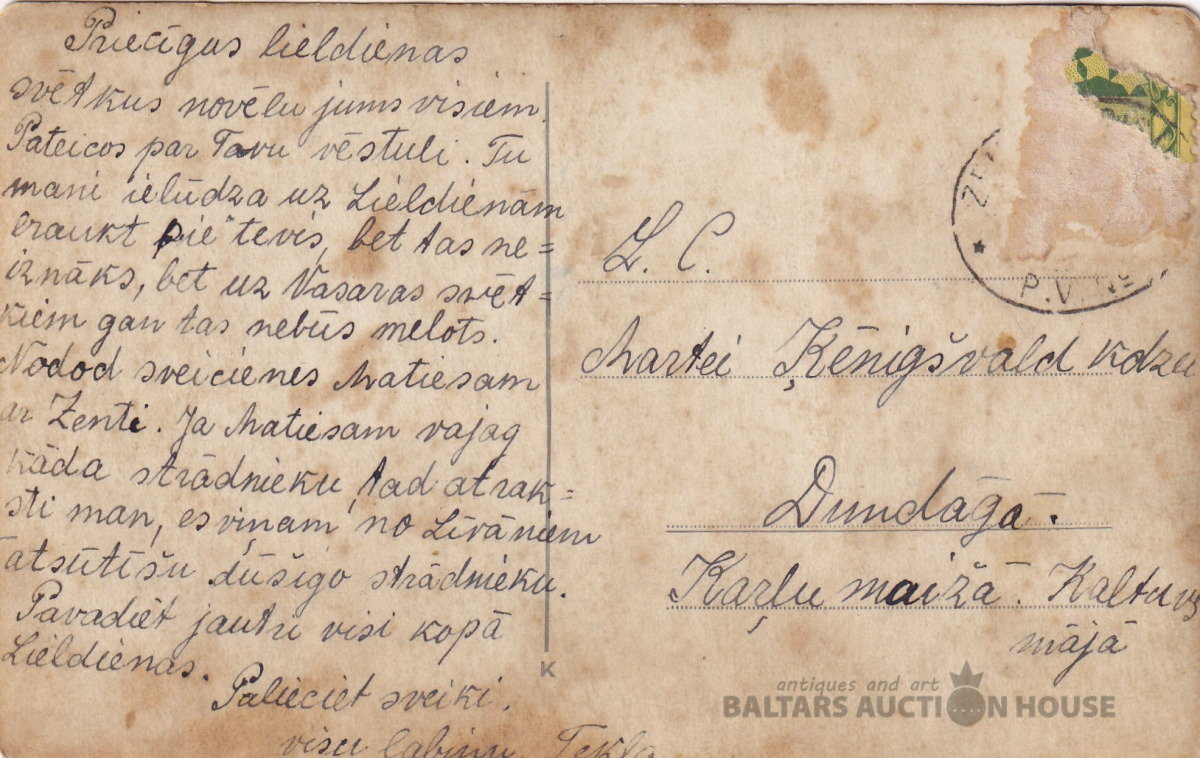 Priecīgus lieldienas
svētkus novēlu jums visiem.
Pateicos par Tavu vēstuli. Tu
mani ielūdza uz Lieldienām
braukt pie tevis, bet tas ne=
iznāks, bet uz Vasaras svēt=
kiem gan tas nebūs melots.
Nodod sveicienes Matiesam
ar Zenti. Ja Matiesam vajag
kāda strādnieku, tad atrak=
sti man, es viņam no Līvāniem
atsūtīšu dūšigo strādnieku.
Pavadiet jautri visi kopā
Lieldienas.
Palieciet sveiki.
visu labinu Tekla
L. C.
Martei Ķēnigšvald kdze
Dundāgā.
Kaŗļu maižā. Kaltuvs
mājā
P.V.
K
antiques and art
BALTARS AUCTION HOUSE